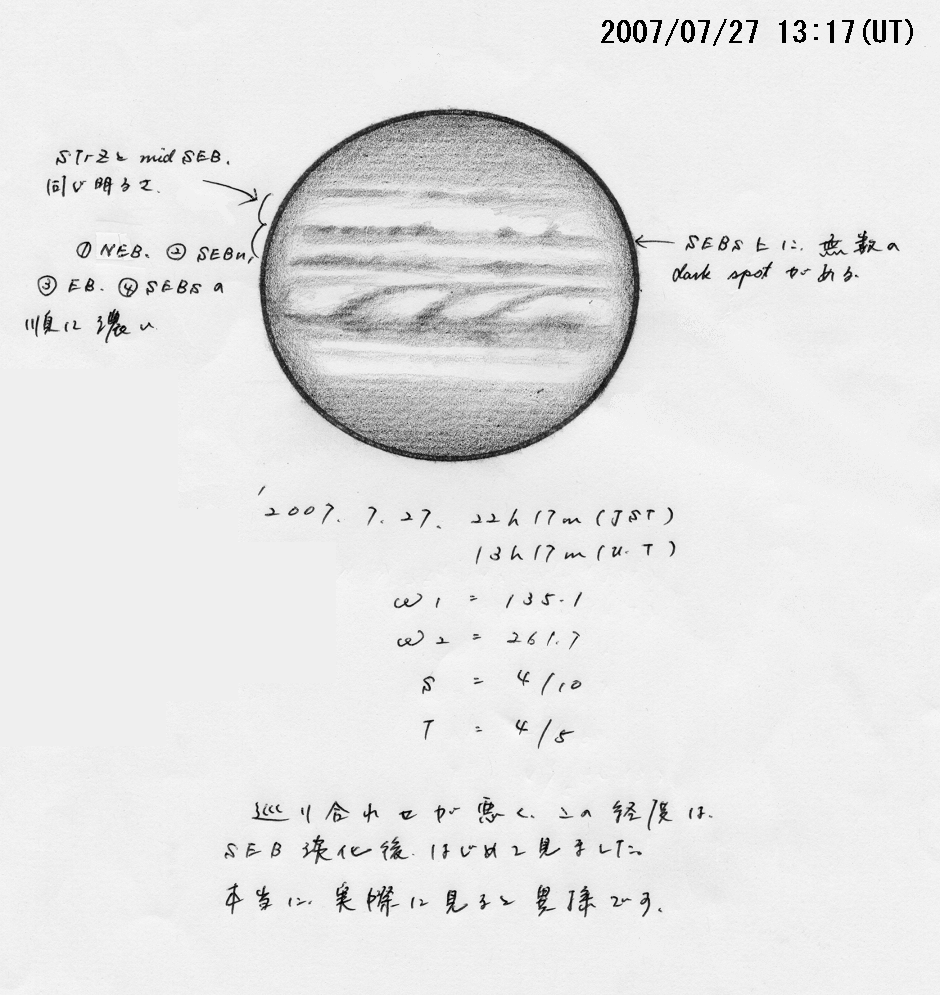 2007/07/27 13:17(UT)
STrZと mid SEB.
同じ明るさ.
① NEB. ② SEBn,
③ EB. ④ SEBsの
順に濃い
SEBs上に、無数の
dark spotがある.
'2007. 7. 27. 22h17m (JST)
13h17m (U.T)
ω1 = 135.1
ω2 = 261.7
S = 4/10
T = 4/5
巡り合わせが悪く、この経度は.
SEB淡化後、はじめて見ました。
本当に、実際に見ると異様です.